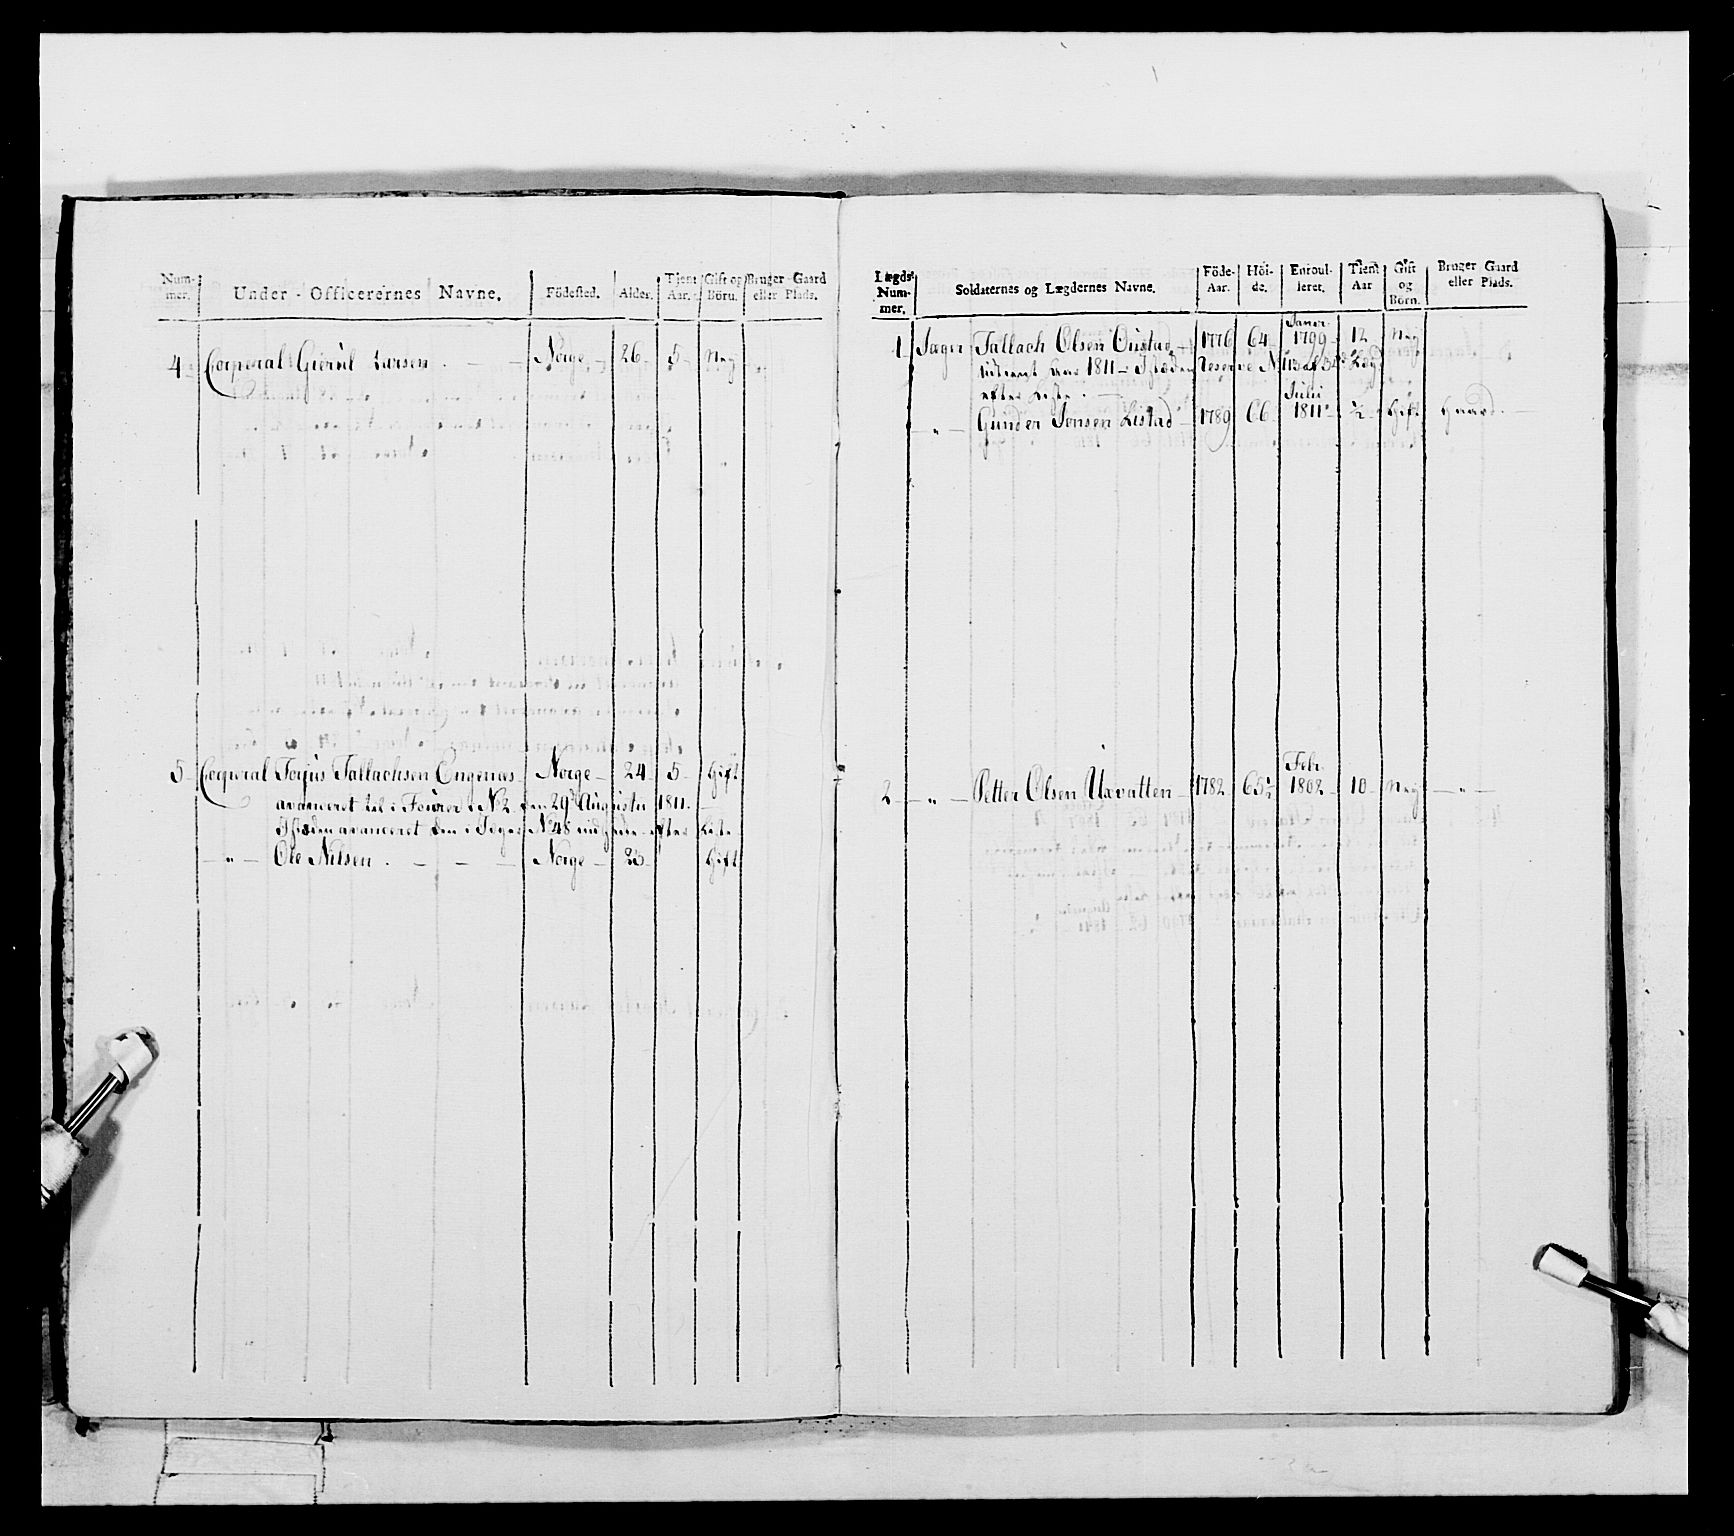 Num-mer. Under-Officerernes Navne. Födested. Alder. Tient Aar. Gift og Börn. Bruger Gaard eller Plads.
4 Corporal Gierul Larsen Norge 26 5 Ney
5 Corporal Torjus Tallachsen Engenes Norge 24 5 Gift
avanceret til Fourer No 2 den 29de Augusti 1811.
Isteden avanceret den Jæger No 48 efter Liste
" Ole Nilsen Norge 23 Gift
Lægds Num-mer. Soldaternes og Lægdernes Navne. Föde-Aar. Höi-de. Enroul-leret. Tient Aar Gift og Börn. Bruger Gaard eller Plads.
1 Jæger Tallach Olsen 1776 64 Janr. 1799 12 Ney
Aar 1811 Isteden Reserve No
efter Liste
" Gunder Jensen Listad 1789 66 Julii 1811 1/2 Gift Gaard
2 " Petter Olsen Uxvatten 1782 65 1/2 Febr. 1802 10 Ney "